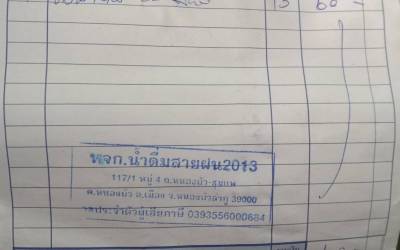 15 60 -
หจก.น้ำดื่มสายฝน2013
117/1 หมู่ 4 ถ.หนองบัว-ชุมแพ
ต.หนองบัว อ.เมือง จ.หนองบัวลำภู 39000
เลขประจำตัวผู้เสียภาษี 0393556000684